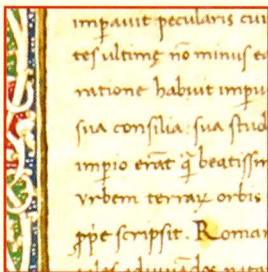 imp̄auit peculiaris cui
tes ultimę nō minus eo
ratione habuit impiu
sua consilia: sua stud
imp̄io erāt q̄ beatissim
vrbem terraꝝ orbis
ꝓpe scripsit. Roman